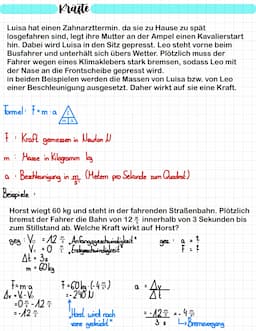 Kräfte
Luisa hat einen Zahnarzttermin. da sie zu Hause zu spät
losgefahren sind, legt ihre Mutter an der Ampel einen Kavalierstart
hin. Dabei wird Luisa in den Sitz gepresst. Leo steht vorne beim
Busfahrer und unterhält sich übers Wetter. Plötzlich muss der
Fahrer wegen eines Klimaklebers stark bremsen, sodass Leo mit
der Nase an die Frontscheibe gepresst wird.
in beiden Beispielen werden die Massen von Luisa bzw. von Leo
einer Beschleunigung ausgesetzt. Daher wirkt auf sie eine Kraft.
Formel: F = m · a
F : Kraft gemessen in Newton N
m : Masse in Kilogramm kg
a : Beschleunigung in m/s² (Metern pro Sekunde zum Quadrat)
Beispiele :
Horst wiegt 60 kg und steht in der fahrenden Straßenbahn. Plötzlich
bremst der Fahrer die Bahn von 12 m/s innerhalb von 3 Sekunden bis
zum Stillstand ab. Welche Kraft wirkt auf Horst?
geg : V₀ = 12 m/s „Anfangsgeschwindigkeit" ges : a = ?
V₁ = 0 m/s „Endgeschwindigkeit" F = ?
Δt = 3s
m = 60kg
F = m·a F = 60kg·(-4 m/s²) a = Δv/Δt
Δv = V₁-V₀ = -240 N
= 0 m/s - 12 m/s
= -12 m/s „Horst wird nach vorne gedrückt" = -12 m/s / 3s = -4 m/s²
Bremsvorgang